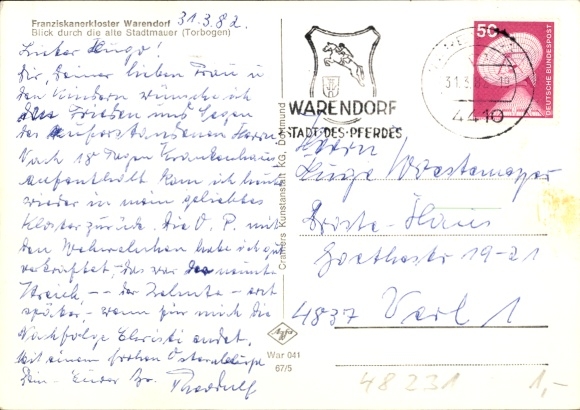 Franziskanerkloster Warendorf
Blick durch die alte Stadtmauer (Torbogen)
31.3.82.
Lieber Hugo!
Dir, Deiner lieben Frau u
den Kindern wünsche ich
den Frieden und Segen
des auferstandenen Herrn
Nach 18 Tagen Krankenhaus
aufenthalt kam ich heute
wieder in mein geliebtes
Kloster zurück. Die O. P. mit
den Wehwehchen habe ich gut
verkraftet, das war der neunte
Streich, -- der Zehnte - erst
später, - wenn für mich die
Nachfolge Christi endet.
Mit einem frohen Ostergrüße
Dein - Euer Br.
Cramers Kunstanstalt KG, Dortmund
War 041
67/5
WARENDORF
STADT·DES·PFERDES
31.3.82
4410
50
DEUTSCHE BUNDESPOST
Herrn
Hugo
Droste-Haus
Goethestr 19-21
4837 Verl 1
48231 1,-